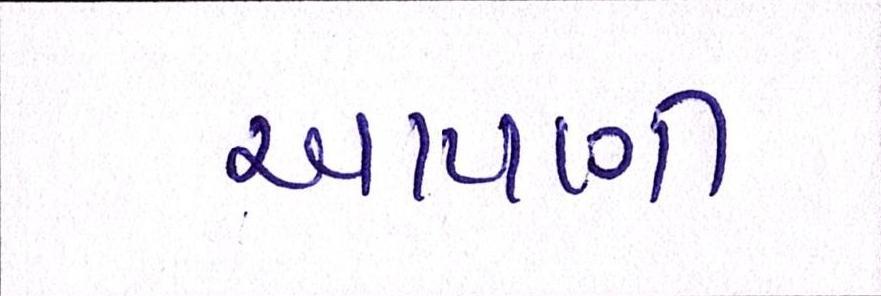 આપણી